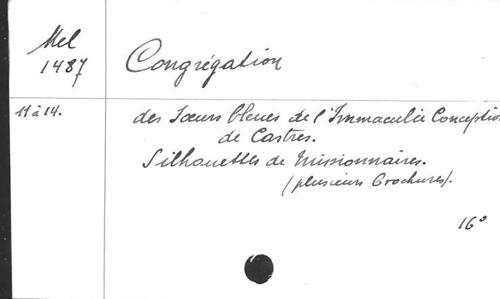 Mel
1487
Congrégation
11 à 14.
des Sœurs bleues de l'Immaculée Conception
de Castres.
Silhouettes de Missionnaires.
(plusieurs brochures).
16°